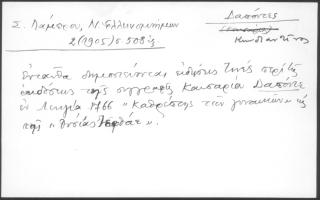 Σ. Λάμπρου, Ν. Ελληνομνήμων
2 (1905) σ. 508 ἑξ.
Δαπόντες
Κωνσταντῖνος
Ἐνταῦθα δημοσιεύονται εἰδήσεις τινές περί τῆς
ἐκδόσεως τῆς συγγραφῆς Καισαρίου Δαπόντε
ἐν Λειψίᾳ 1766 "Καθρέπτης τῶν γυναικῶν" ὡς
τῆς "Θυσίας Ἰεφθάε".